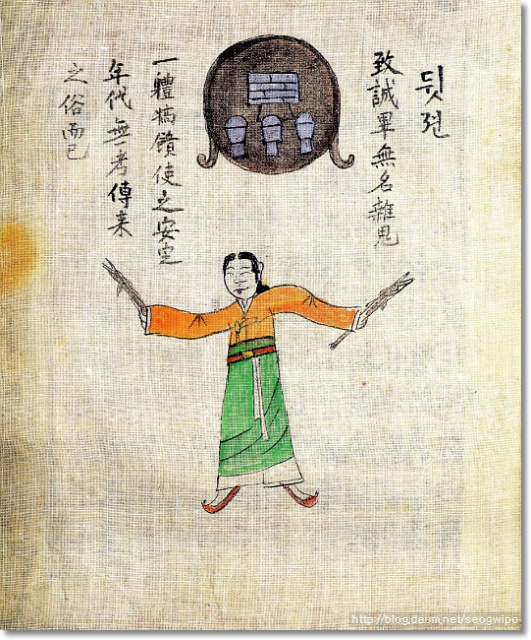 뒷젼
致誠畢無名雜鬼
一體犒饋使之安定
年代無考傳来
之俗而已
http://blog.daum.net/seogwipo